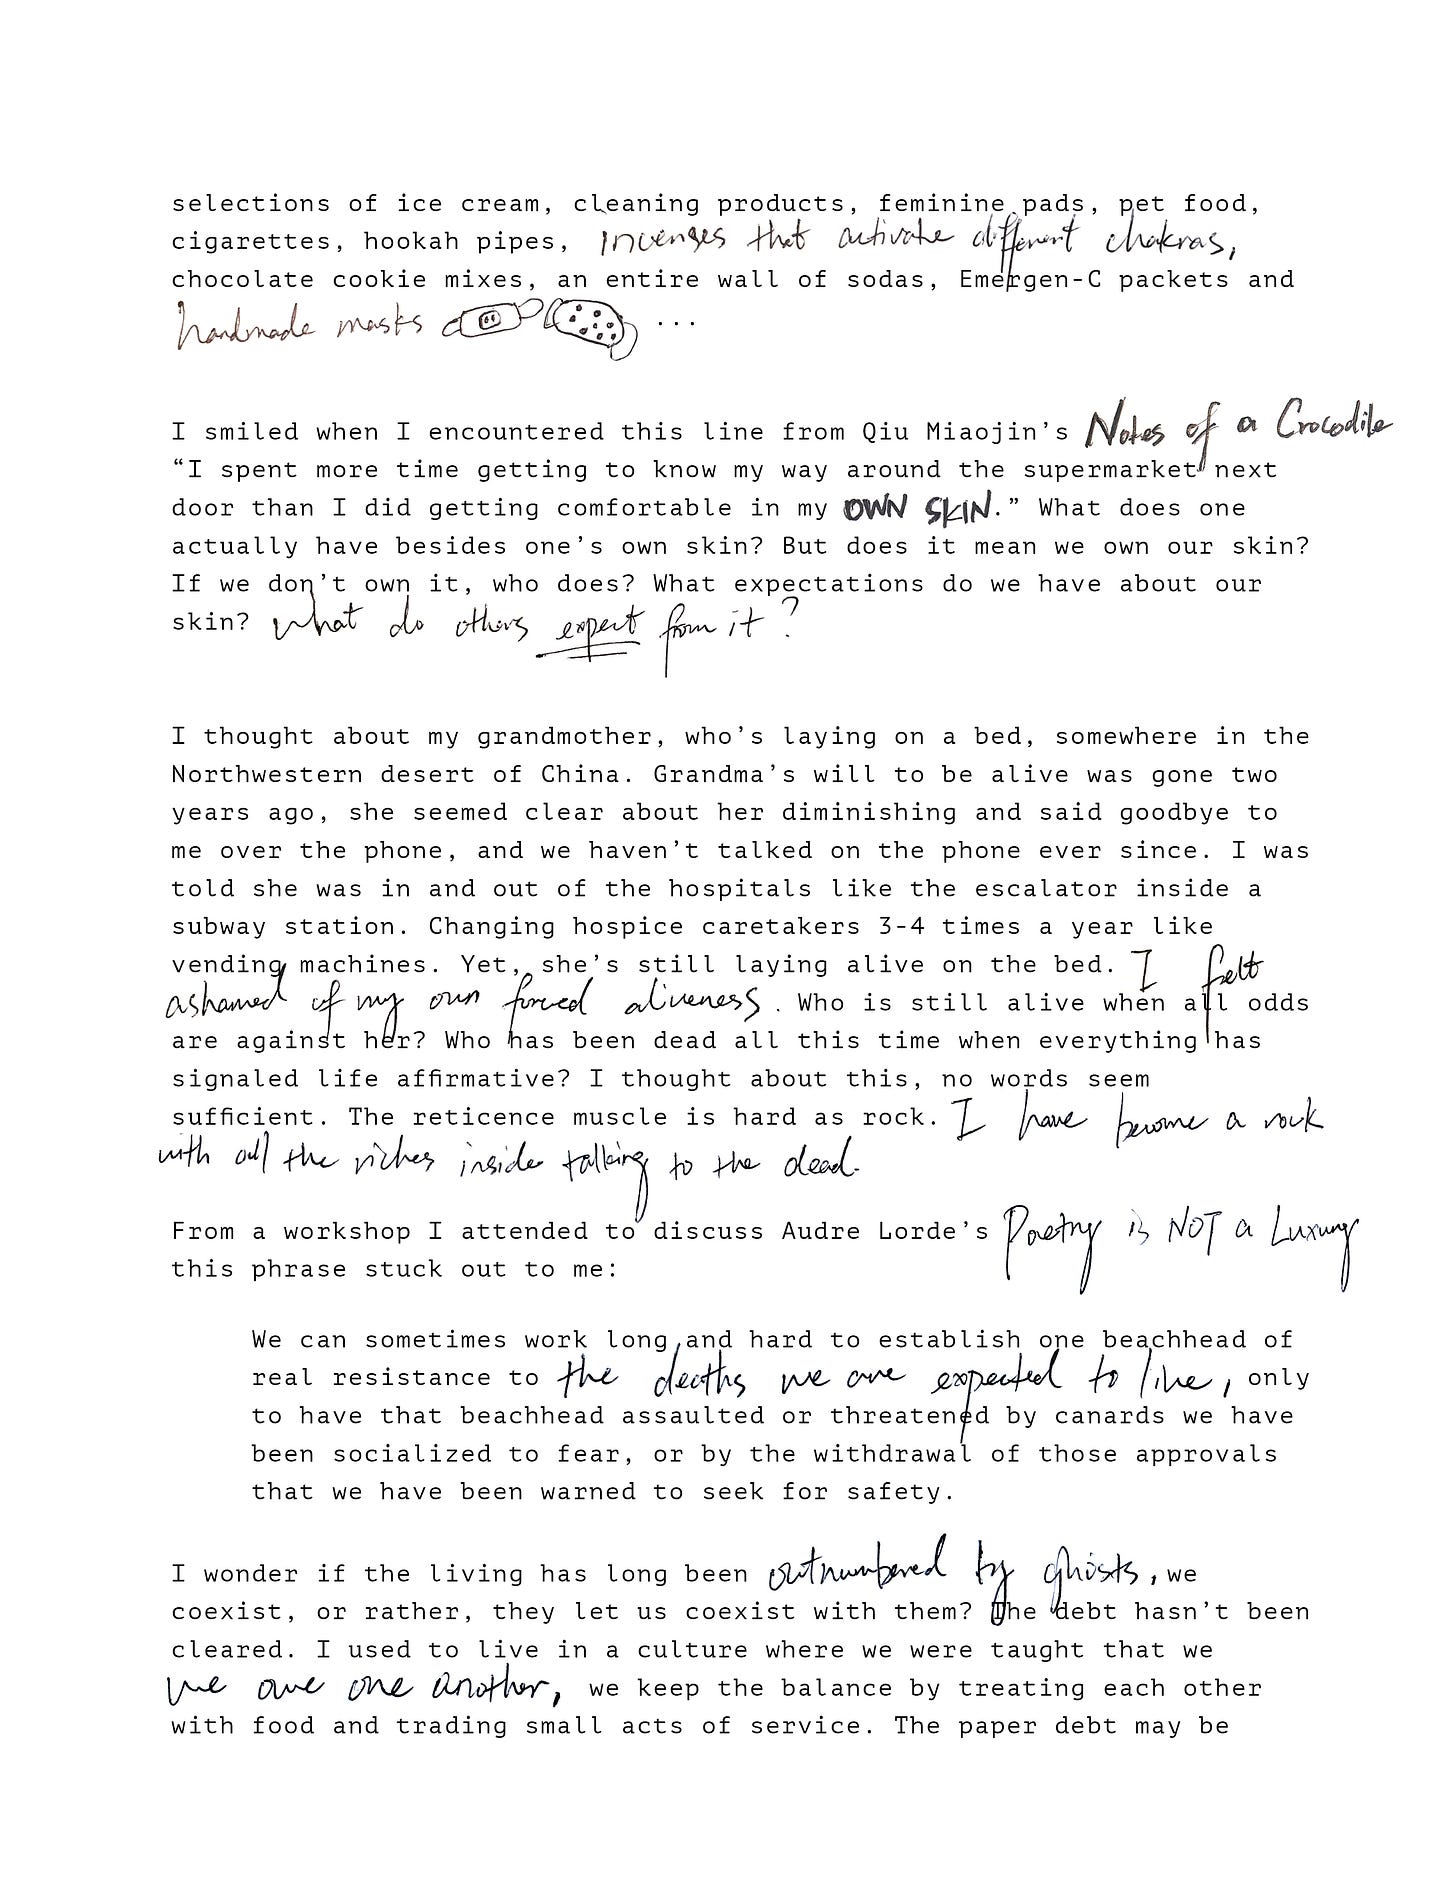 selections of ice cream, cleaning products, feminine pads, pet food,
cigarettes, hookah pipes, incenses that activate different chakras,
chocolate cookie mixes, an entire wall of sodas, Emergen-C packets and
handmade masks ...
I smiled when I encountered this line from Qiu Miaojin’s Notes of a Crocodile
“I spent more time getting to know my way around the supermarket next
door than I did getting comfortable in my OWN SKIN.” What does one
actually have besides one’s own skin? But does it mean we own our skin?
If we don’t own it, who does? What expectations do we have about our
skin? What do others expect from it?
I thought about my grandmother, who’s laying on a bed, somewhere in the
Northwestern desert of China. Grandma’s will to be alive was gone two
years ago, she seemed clear about her diminishing and said goodbye to
me over the phone, and we haven’t talked on the phone ever since. I was
told she was in and out of the hospitals like the escalator inside a
subway station. Changing hospice caretakers 3-4 times a year like
vending machines. Yet, she’s still laying alive on the bed. I felt
ashamed of my own forced aliveness. Who is still alive when all odds
are against her? Who has been dead all this time when everything has
signaled life affirmative? I thought about this, no words seem
sufficient. The reticence muscle is hard as rock. I have become a rock
with all the riches inside talking to the dead.
From a workshop I attended to discuss Audre Lorde’s Poetry is NOT a Luxury
this phrase stuck out to me:
We can sometimes work long and hard to establish one beachhead of
real resistance to the deaths we are expected to live, only
to have that beachhead assaulted or threatened by canards we have
been socialized to fear, or by the withdrawal of those approvals
that we have been warned to seek for safety.
I wonder if the living has long been outnumbered by ghosts, we
coexist, or rather, they let us coexist with them? The debt hasn’t been
cleared. I used to live in a culture where we were taught that we
we owe one another, we keep the balance by treating each other
with food and trading small acts of service. The paper debt may be